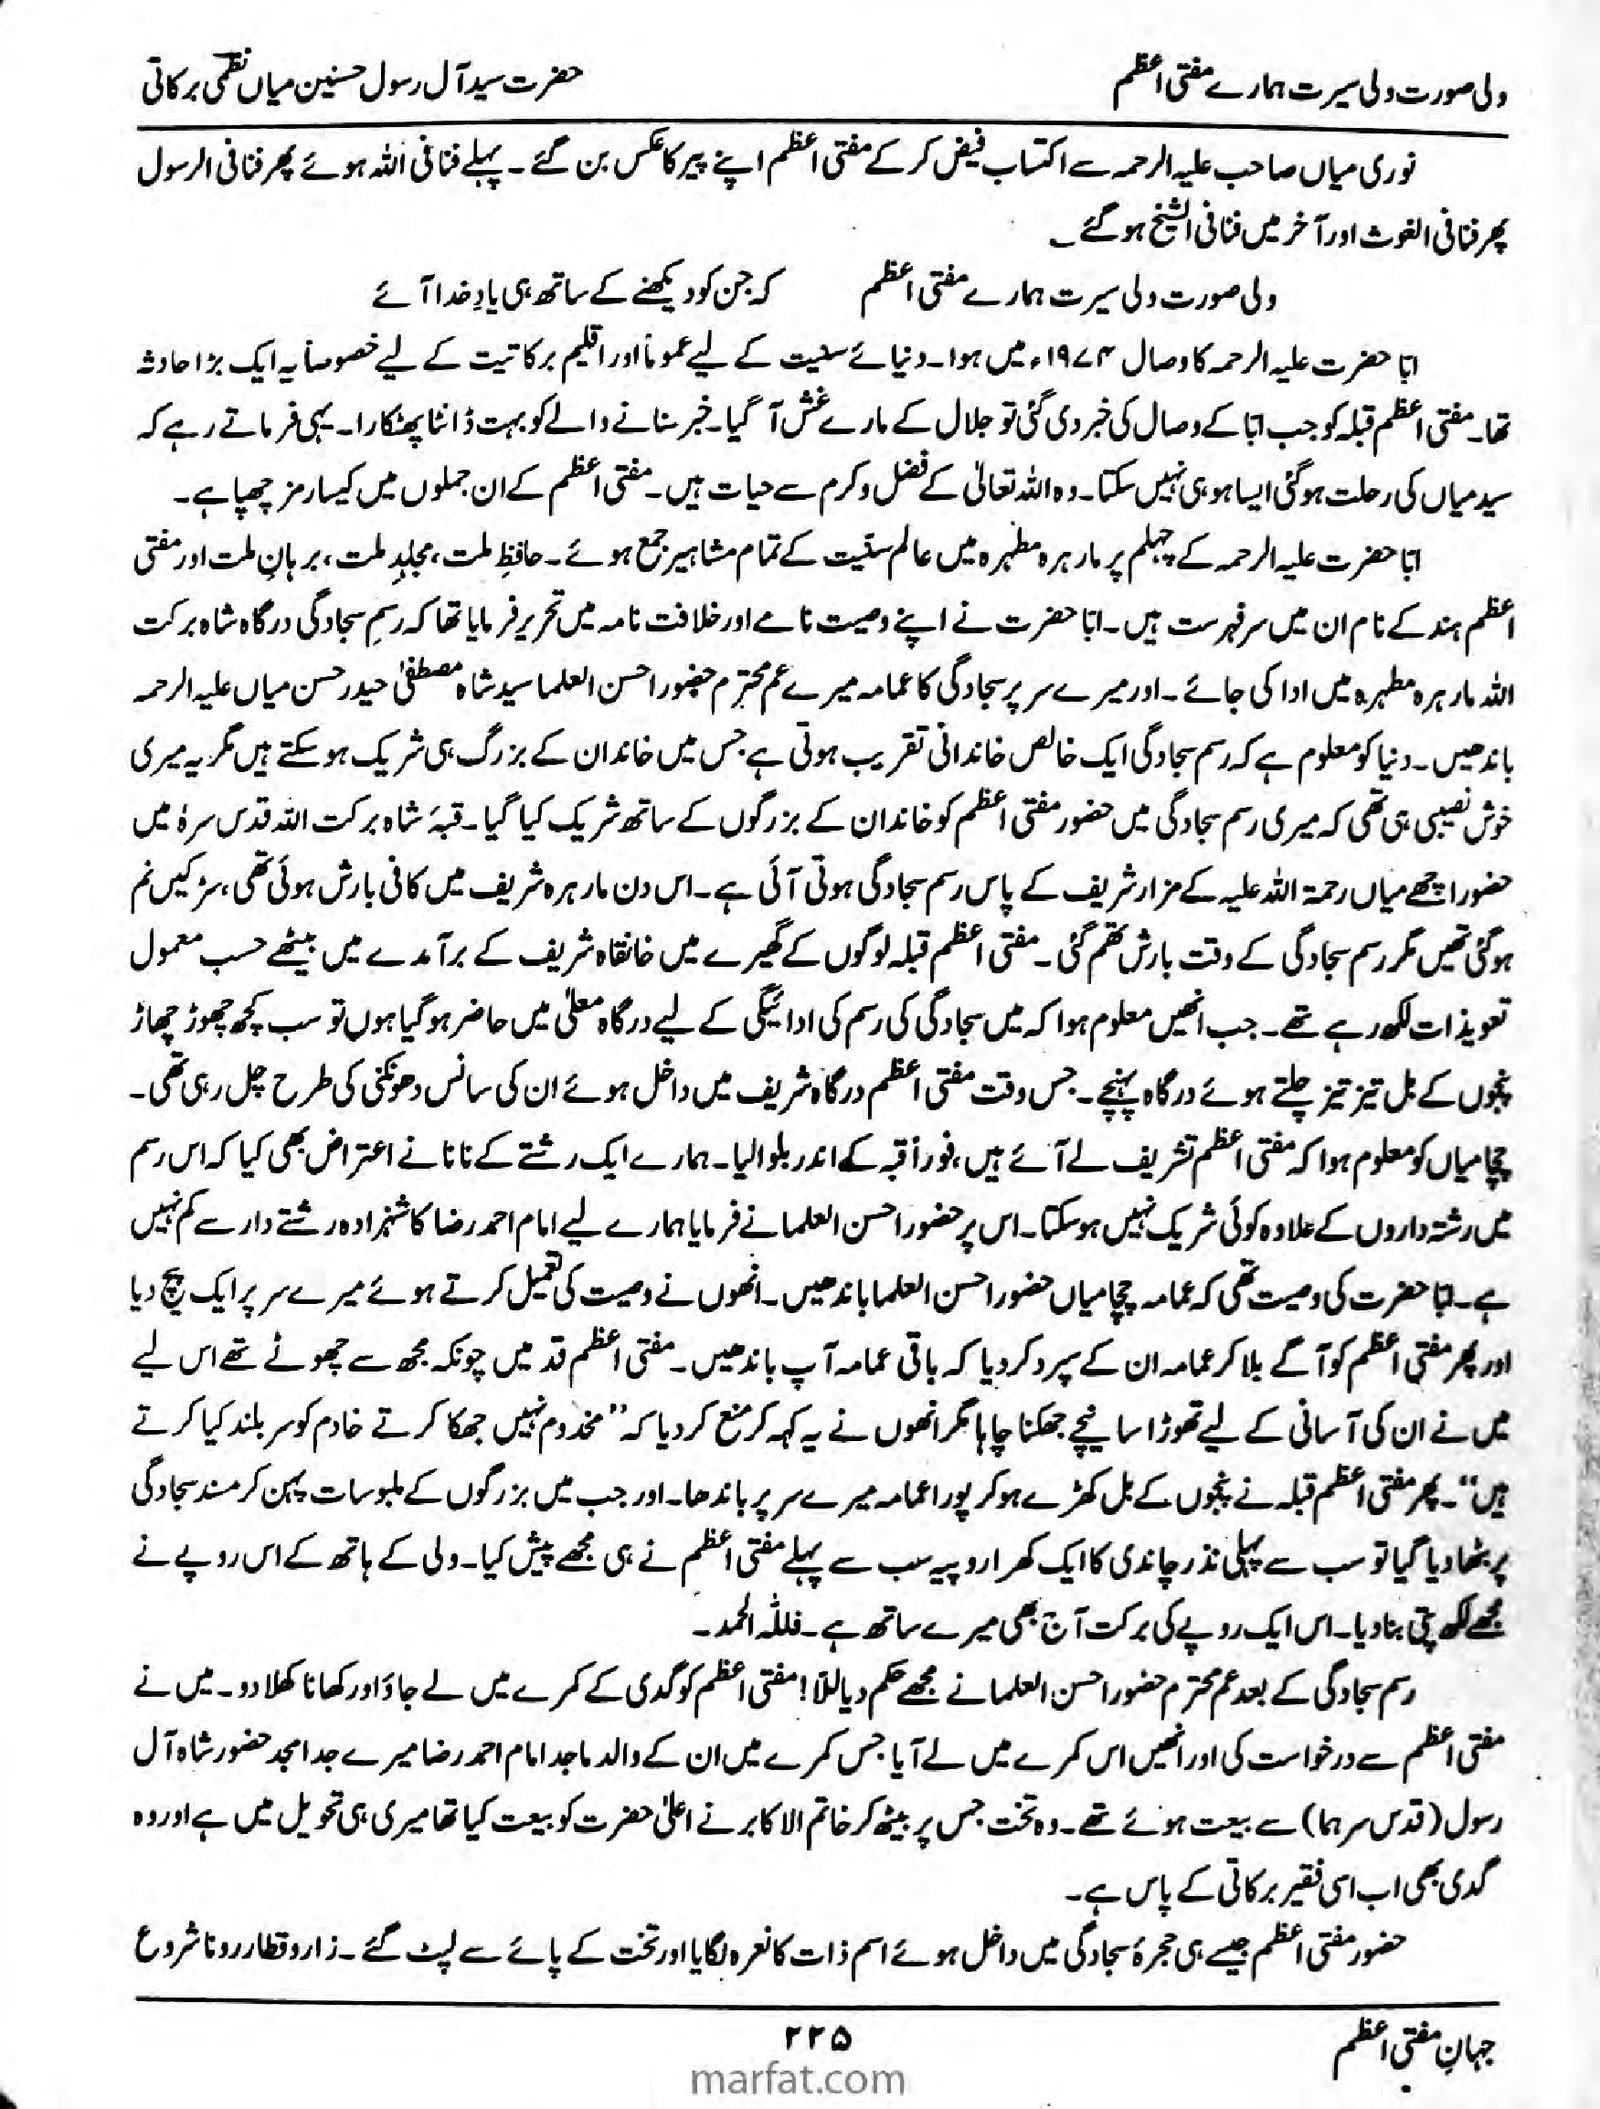 ولی صورت ولی سیرت ہمارے مفتی اعظم
حضرت سید آل رسول حسنین میاں نظمی برکاتی
نوری میاں صاحب علیہ الرحمہ سے اکتساب فیض کر کے مفتی اعظم اپنے پیر کا عکس بن گئے۔ پہلے فنا فی اللہ ہوئے پھر فنا فی الرسول
پھر فنا فی الغوث اور آخر میں فنا فی الشیخ ہو گئے۔
ولی صورت ولی سیرت ہمارے مفتی اعظم کہ جن کو دیکھنے کے ساتھ ہی یادِ خدا آئے
ابّا حضرت علیہ الرحمہ کا وصال ۱۹۷۴ء میں ہوا۔ دنیائے سنیت کے لیے عموماً اور اقلیم برکاتیت کے لیے خصوصاً یہ ایک بڑا حادثہ
تھا۔ مفتی اعظم قبلہ کو جب ابّا کے وصال کی خبر دی گئی تو جلال کے مارے غش آ گیا۔ خبر سنانے والے کو بہت ڈانٹا پھٹکارا۔ یہی فرماتے رہے کہ
سید میاں کی رحلت ہو گئی ایسا ہو ہی نہیں سکتا۔ وہ اللہ تعالیٰ کے فضل و کرم سے حیات ہیں۔ مفتی اعظم کے ان جملوں میں کیسا رمز چھپا ہے۔
ابّا حضرت علیہ الرحمہ کے چہلم پر مارہرہ مطہرہ میں عالم سنّیت کے تمام مشاہیر جمع ہوئے۔ حافظِ ملت، مجاہدِ ملت، برہانِ ملت اور مفتی
اعظم ہند کے نام ان میں سرفہرست ہیں۔ ابّا حضرت نے اپنے وصیت نامے اور خلافت نامہ میں تحریر فرمایا تھا کہ رسمِ سجادگی درگاہ شاہ برکت
اللہ مارہرہ مطہرہ میں ادا کی جائے۔ اور میرے سر پر سجادگی کا عمامہ میرے عم محترم حضور احسن العلما سید شاہ مصطفیٰ حیدر حسن میاں علیہ الرحمہ
باندھیں۔ دنیا کو معلوم ہے کہ رسم سجادگی ایک خالص خاندانی تقریب ہوتی ہے جس میں خاندان کے بزرگ ہی شریک ہو سکتے ہیں مگر یہ میری
خوش نصیبی ہی تھی کہ میری رسم سجادگی میں حضور مفتی اعظم کو خاندان کے بزرگوں کے ساتھ شریک کیا گیا۔ قبۂ شاہ برکت اللہ قدس سرہٗ میں
حضور اچھے میاں رحمۃ اللہ علیہ کے مزار شریف کے پاس رسم سجادگی ہوتی آئی ہے۔ اس دن مارہرہ شریف میں کافی بارش ہوئی تھی، سڑکیں نم
ہو گئی تھیں مگر رسم سجادگی کے وقت بارش تھم گئی۔ مفتی اعظم قبلہ لوگوں کے گھیرے میں خانقاہ شریف کے برآمدے میں بیٹھے حسب معمول
تعویذات لکھ رہے تھے۔ جب انھیں معلوم ہوا کہ میں سجادگی کی رسم کی ادائیگی کے لیے درگاہ معلیٰ میں حاضر ہو گیا ہوں تو سب کچھ چھوڑ چھاڑ
پنجوں کے بل تیز تیز چلتے ہوئے درگاہ پہنچے۔ جس وقت مفتی اعظم درگاہ شریف میں داخل ہوئے ان کی سانس دھونکنی کی طرح چل رہی تھی۔
چچا میاں کو معلوم ہوا کہ مفتی اعظم تشریف لے آئے ہیں، فوراً قبہ کے اندر بلوا لیا۔ ہمارے ایک رشتے کے نانا نے اعتراض بھی کیا کہ اس رسم
میں رشتہ داروں کے علاوہ کوئی شریک نہیں ہو سکتا۔ اس پر حضور احسن العلما نے فرمایا ہمارے لیے امام احمد رضا کا شہزادہ رشتے دار سے کم نہیں
ہے۔ ابّا حضرت کی وصیت تھی کہ عمامہ چچا میاں حضور احسن العلما باندھیں۔ انھوں نے وصیت کی تعمیل کرتے ہوئے میرے سر پر ایک پیچ دیا
اور پھر مفتی اعظم کو آگے بلا کر عمامہ ان کے سپرد کر دیا کہ باقی عمامہ آپ باندھیں۔ مفتی اعظم قد میں چونکہ مجھ سے چھوٹے تھے اس لیے
میں نے ان کی آسانی کے لیے تھوڑا سا نیچے جھکنا چاہا مگر انھوں نے یہ کہہ کر منع کر دیا کہ ”مخدوم نہیں جھکا کرتے خادم کو سر بلند کیا کرتے
ہیں“۔ پھر مفتی اعظم قبلہ نے پنجوں کے بل کھڑے ہو کر پورا عمامہ میرے سر پر باندھا۔ اور جب میں بزرگوں کے ملبوسات پہن کر مسند سجادگی
پر بٹھا دیا گیا تو سب سے پہلی نذر چاندی کا ایک کھرا روپیہ سب سے پہلے مفتی اعظم نے ہی مجھے پیش کیا۔ ولی کے ہاتھ کے اس روپے نے
مجھے لکھ پتی بنا دیا۔ اس ایک روپے کی برکت آج بھی میرے ساتھ ہے۔ فللّٰہ الحمد۔
رسم سجادگی کے بعد عم محترم حضور احسن العلما نے مجھے حکم دیا للّا! مفتی اعظم کو گدی کے کمرے میں لے جاؤ اور کھانا کھلا دو۔ میں نے
مفتی اعظم سے درخواست کی اور انھیں اس کمرے میں لے آیا جس کمرے میں ان کے والد ماجد امام احمد رضا میرے جد امجد حضور شاہ آل
رسول (قدس سرہما) سے بیعت ہوئے تھے۔ وہ تخت جس پر بیٹھ کر خاتم الاکابر نے اعلیٰ حضرت کو بیعت کیا تھا میری ہی تحویل میں ہے اور وہ
گدی بھی اب اسی فقیر برکاتی کے پاس ہے۔
حضور مفتی اعظم جیسے ہی حجرۂ سجادگی میں داخل ہوئے اسم ذات کا نعرہ لگایا اور تخت کے پائے سے لپٹ گئے۔ زار و قطار رونا شروع
۲۲۵
جہانِ مفتی اعظم
marfat.com